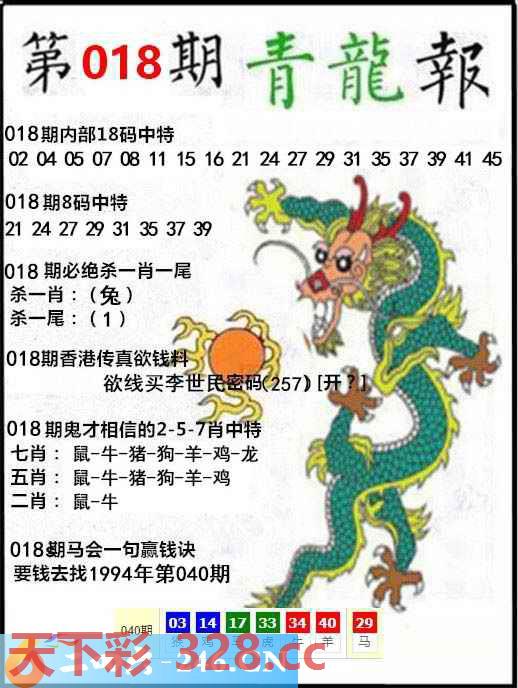 第018期 青龍報
018期内部18码中特
02 04 05 07 08 11 15 16 21 24 27 29 31 35 37 39 41 45
018期8码中特
21 24 27 29 31 35 37 39
018期必绝杀一肖一尾
杀一肖：（兔）
杀一尾：（1）
018期香港传真欲钱料
欲线买李世民密码(257)[开？]
018期鬼才相信的2-5-7肖中特
七肖： 鼠-牛-猪-狗-羊-鸡-龙
五肖： 鼠-牛-猪-狗-羊-鸡
二肖： 鼠-牛
018期马会一句赢钱诀
要钱去找1994年第040期
040期 03 14 17 33 34 40 29
虎 牛 羊 马
天下彩-328.cc